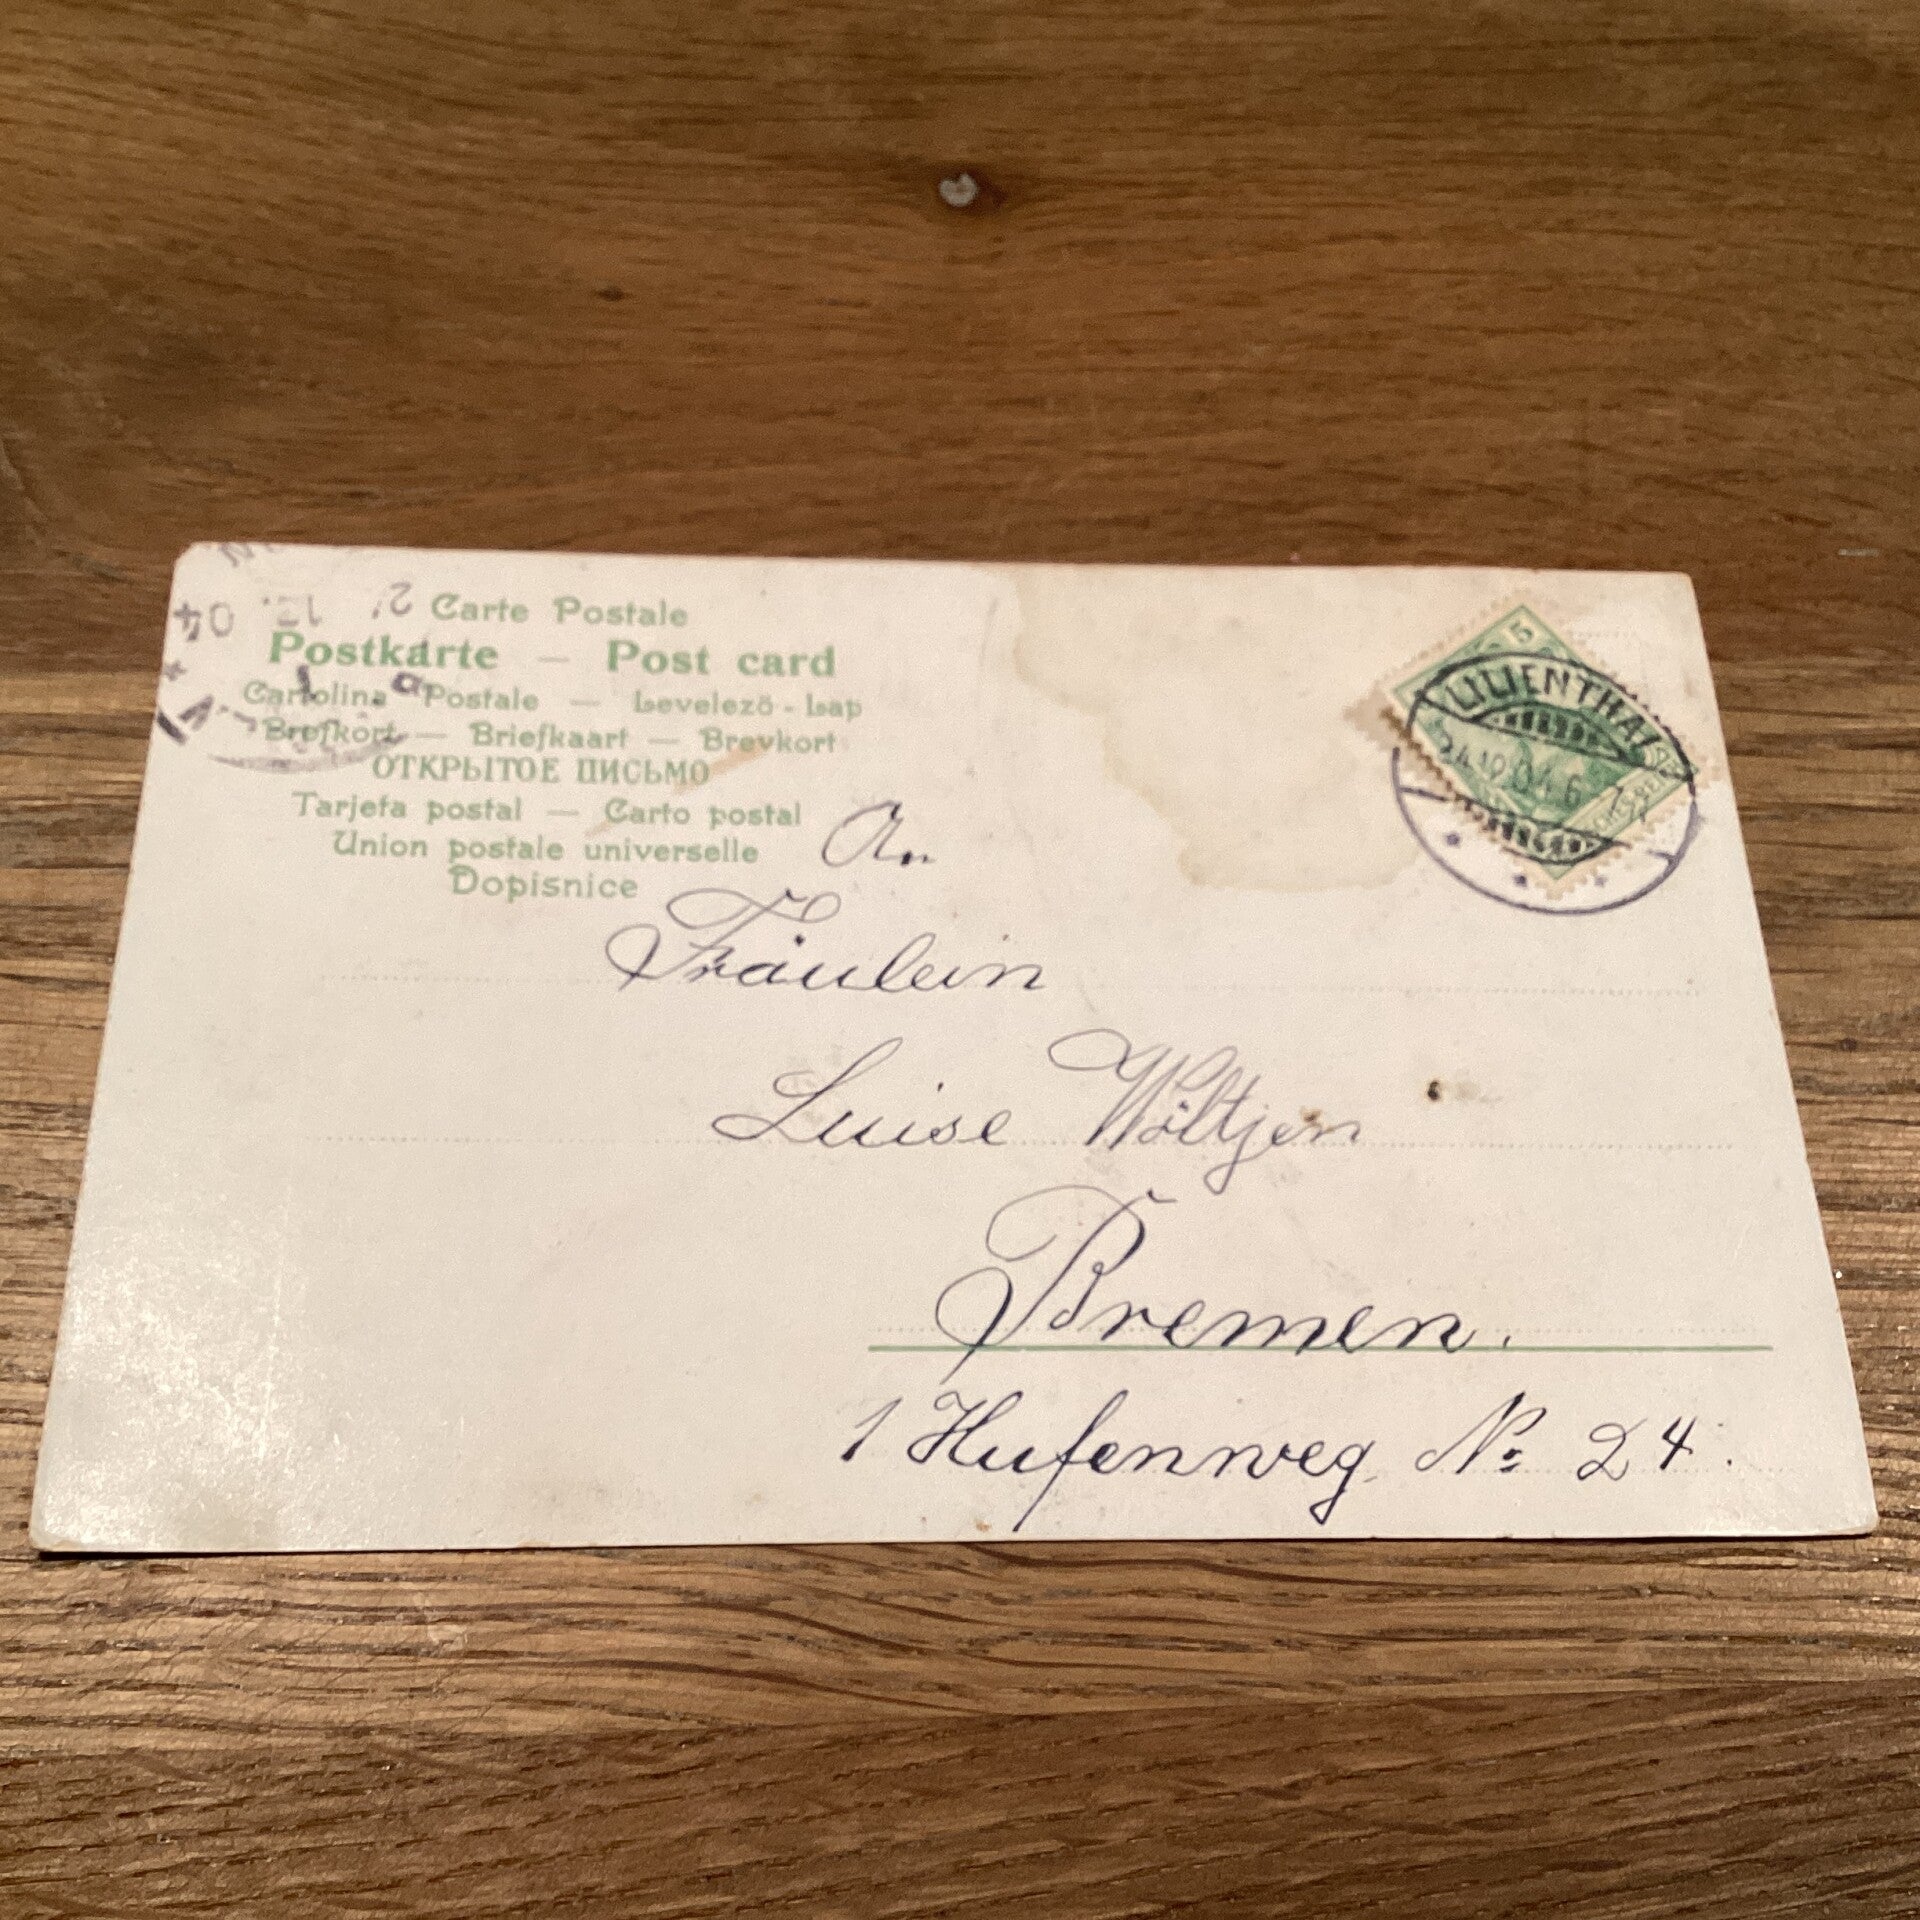 Carte Postale
Postkarte — Post card
Cartolina Postale — Levelezö-Lap
Brefkort — Briefkaart — Brevkort
ОТКРЫТОЕ ПИСЬМО
Tarjeta postal — Carto postal
Union postale universelle
Dopisnice
5
LILIENTHAL
24.12.04.6
An
Fräulein
Luise Wöltjen
Bremen.
1 Hufenweg № 24.